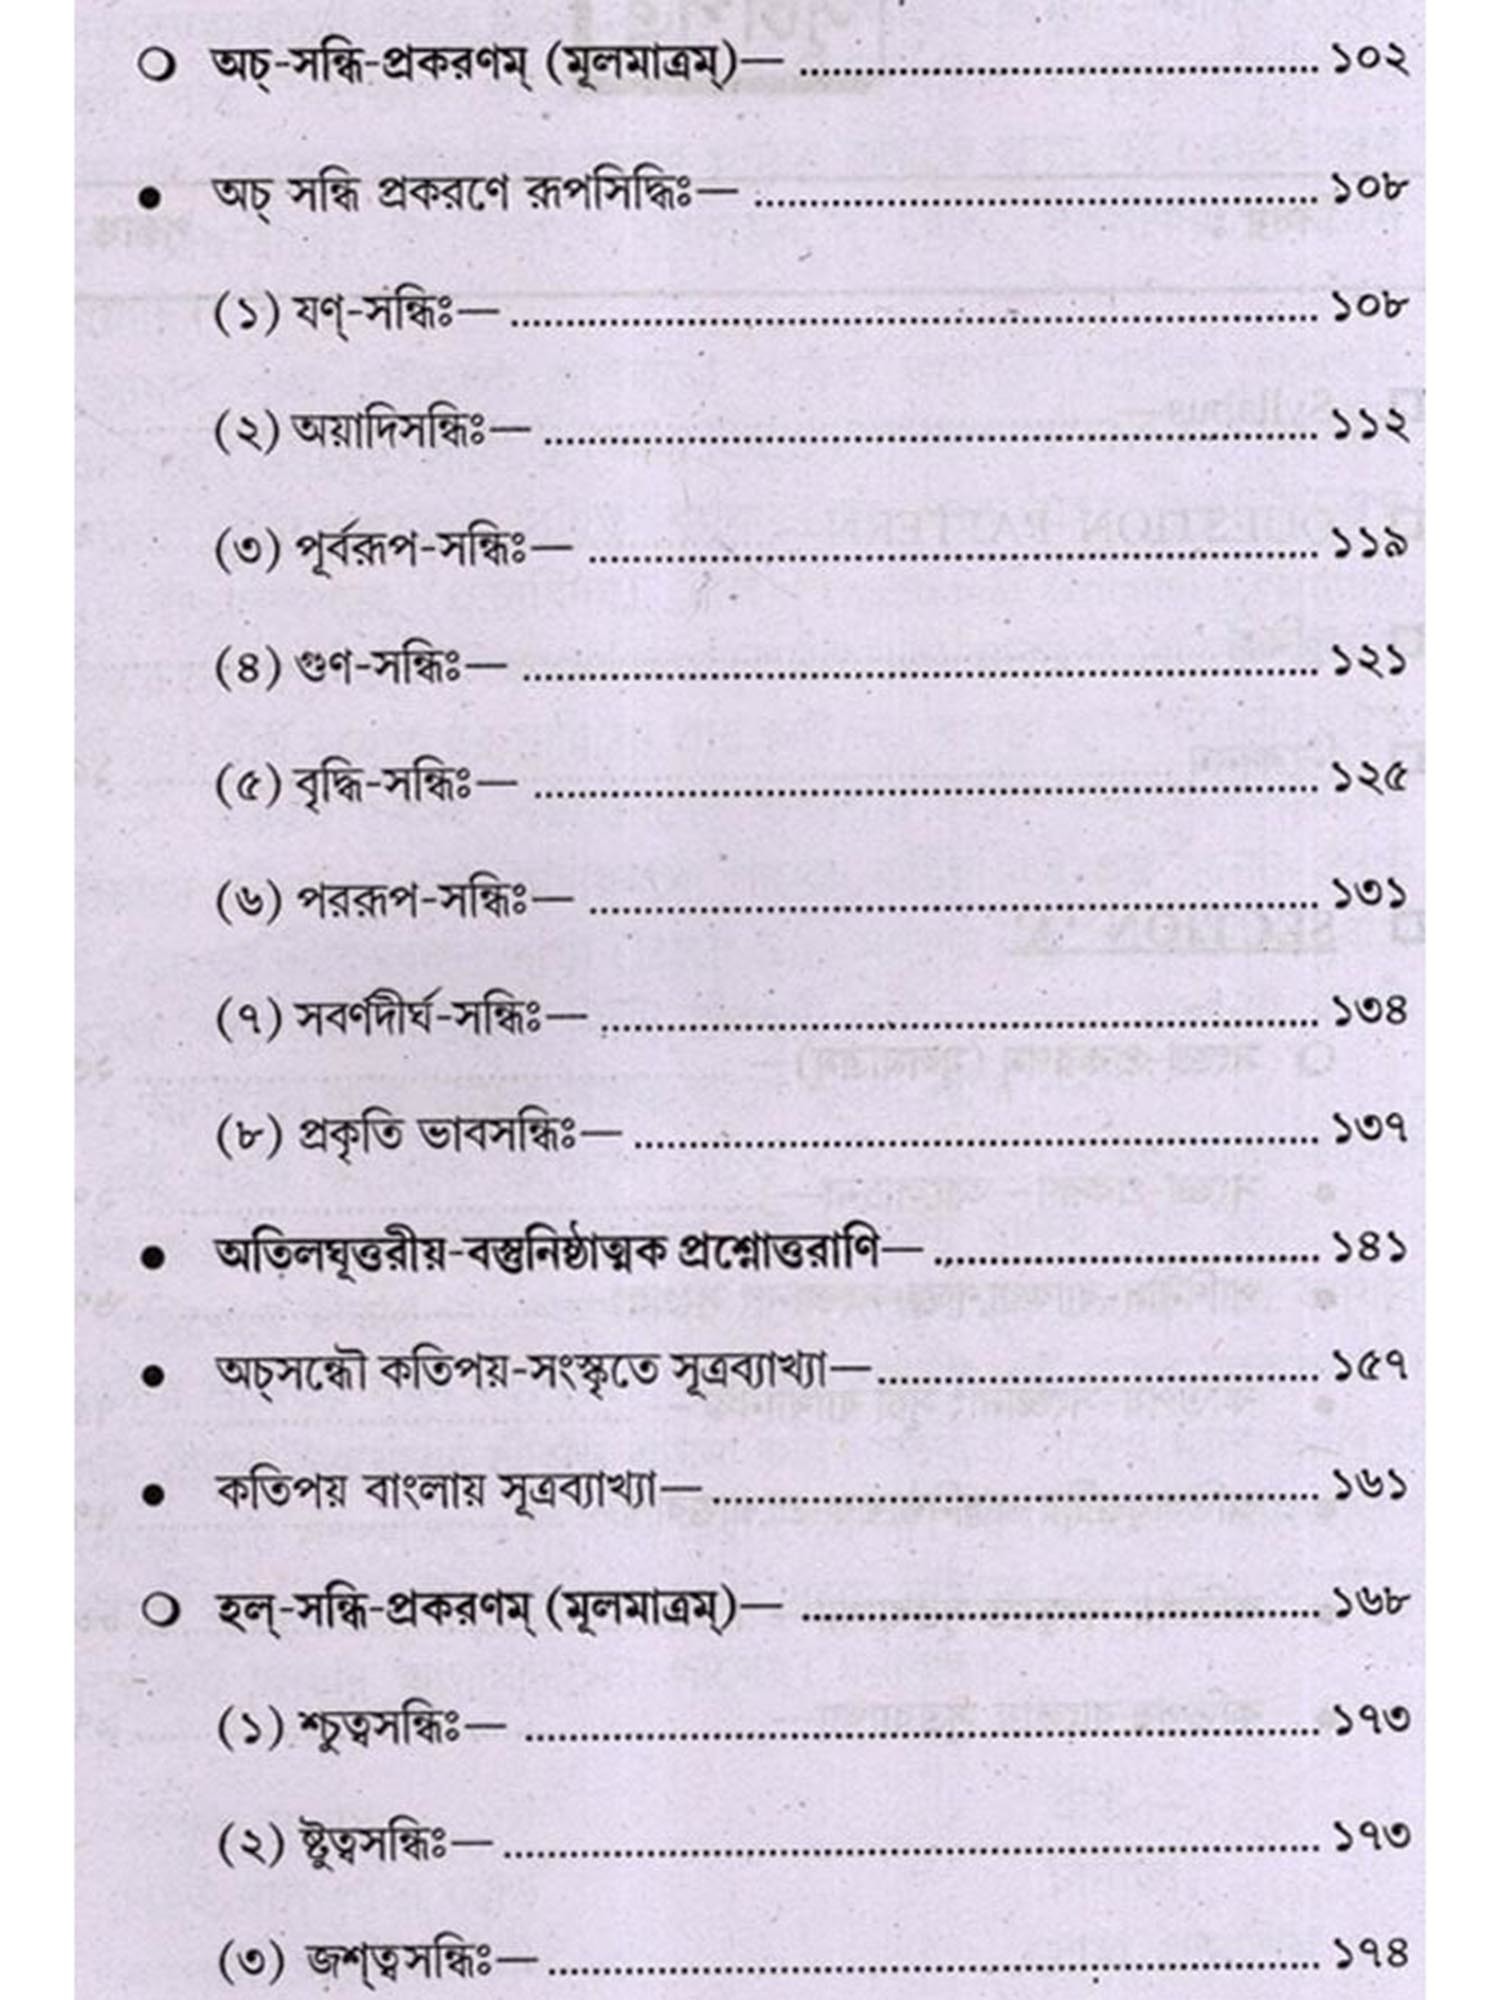 ○ অচ্-সন্ধি-প্রকরণম্ (মূলমাত্রম্)— ........ ১০২
● অচ্ সন্ধি প্রকরণে রূপসিদ্ধিঃ— ........ ১০৮
(১) যণ্-সন্ধিঃ— ........ ১০৮
(২) অয়াদিসন্ধিঃ— ........ ১১২
(৩) পূর্বরূপ-সন্ধিঃ— ........ ১১৯
(৪) গুণ-সন্ধিঃ— ........ ১২১
(৫) বৃদ্ধি-সন্ধিঃ— ........ ১২৫
(৬) পররূপ-সন্ধিঃ— ........ ১৩১
(৭) সবর্ণদীর্ঘ-সন্ধিঃ— ........ ১৩৪
(৮) প্রকৃতি ভাবসন্ধিঃ— ........ ১৩৭
● অতিলঘূত্তরীয়-বস্তুনিষ্ঠাত্মক প্রশ্নোত্তরাণি— ........ ১৪১
● অচ্‌সন্ধৌ কতিপয়-সংস্কৃতে সূত্রব্যাখ্যা— ........ ১৫৭
● কতিপয় বাংলায় সূত্রব্যাখ্যা— ........ ১৬১
○ হল্-সন্ধি-প্রকরণম্ (মূলমাত্রম্)— ........ ১৬৮
(১) শ্চুত্বসন্ধিঃ— ........ ১৭৩
(২) ষ্টুত্বসন্ধিঃ— ........ ১৭৩
(৩) জশ্‌ত্বসন্ধিঃ— ........ ১৭৪